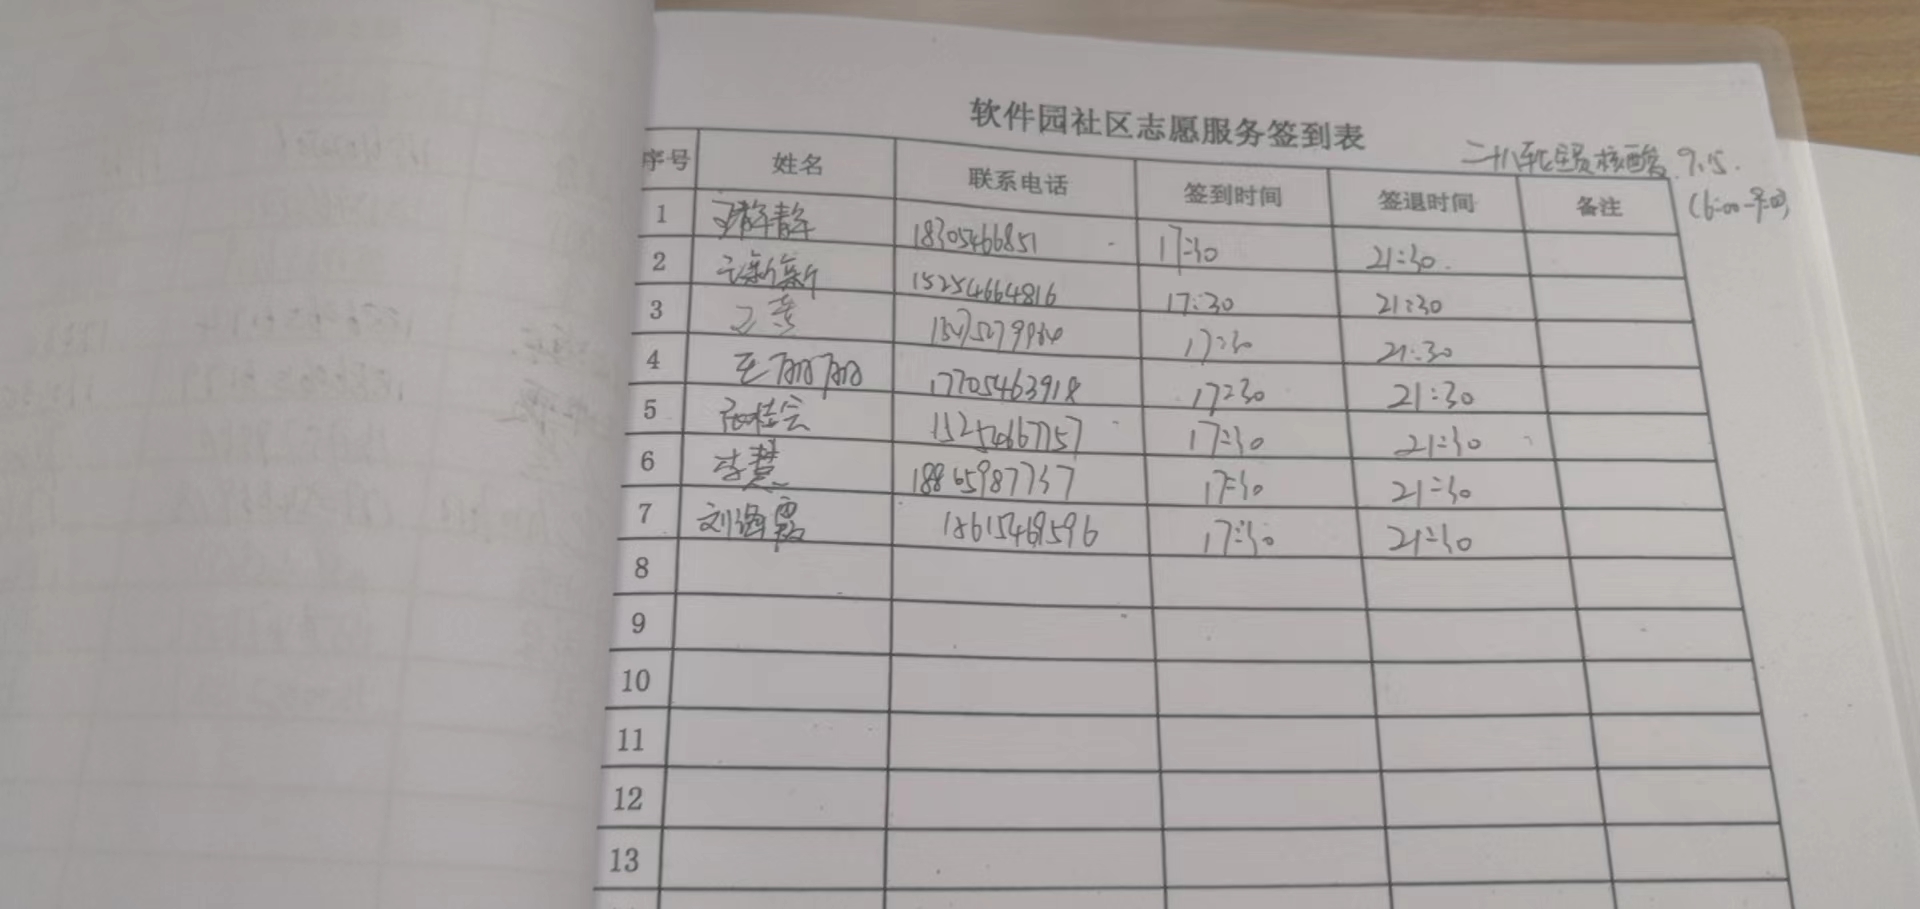 软件园社区志愿服务签到表
二十八轮全员核酸 9.15.
序号 姓名 联系电话 签到时间 签退时间 备注
1 静静 18305466851 17:30 21:30
2 新新 15254664816 17:30 21:30
3 17:30 21:30
4 王丽丽 17705463918 17:30 21:30
5 桂云 15254667757 17:30 21:30
6 李慧 18865987737 17:30 21:30
7 刘海霞 18615469596 17:30 21:30
8
9
10
11
12
13